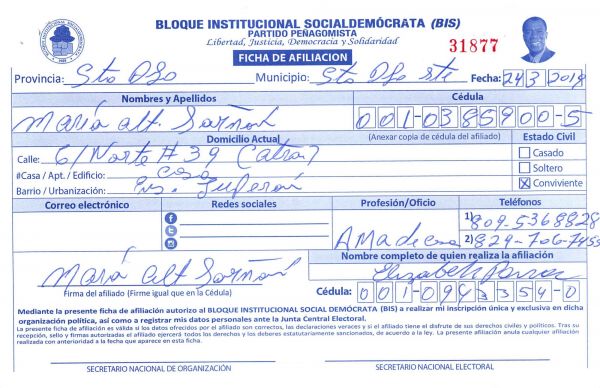 BLOQUE INSTITUCIONAL SOCIALDEMÓCRATA (BIS)
PARTIDO PEÑAGOMISTA
Libertad, Justicia, Democracia y Solidaridad
31877
FICHA DE AFILIACION
Provincia: Sto Dgo Municipio: Sto Dgo ste Fecha: 24/3/2019
Nombres y Apellidos Cédula
María Alt. 001-0385900-5
Domicilio Actual (Anexar copia de cédula del afiliado) Estado Civil
Calle: 6/ Norte # 39
Casado
#Casa / Apt. / Edificio: Casa
Soltero
Barrio / Urbanización:
Conviviente
Correo electrónico Redes sociales Profesión/Oficio Teléfonos
1) 809-5368828
Ama de casa 2) 829-706-7455
María Alt
Nombre completo de quien realiza la afiliación
Elizabeth
Firma del afiliado (Firme igual que en la Cédula)
Cédula: 001-0943354-0
Mediante la presente ficha de afiliación autorizo al BLOQUE INSTITUCIONAL SOCIAL DEMÓCRATA (BIS) a realizar mi inscripción única y exclusiva en dicha
organización política, así como a registrar mis datos personales ante la Junta Central Electoral.
La presente ficha de afiliación es válida si los datos ofrecidos por el afiliado son correctos, las declaraciones veraces y si el afiliado tiene el disfrute de sus derechos civiles y políticos. Tras su
recepción, sello y firmas autorizadas el afiliado ejercerá todos los derechos y los deberes estatutariamente sancionados, de acuerdo a la ley. La presente afiliación anula cualquier afiliación
realizada con anterioridad a la fecha que aparece en esta ficha.
SECRETARIO NACIONAL DE ORGANIZACIÓN SECRETARIO NACIONAL ELECTORAL